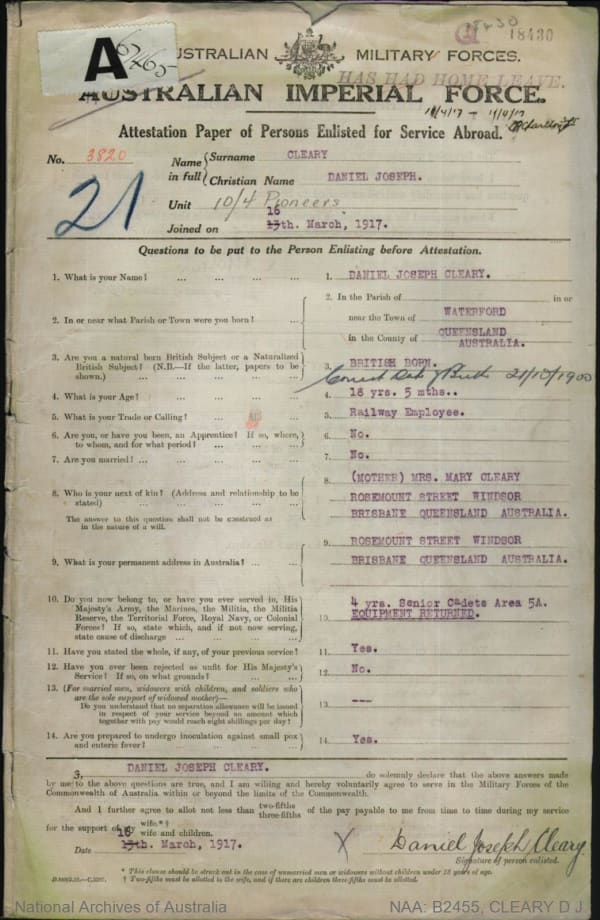 18430
18430
A 62465
AUSTRALIAN MILITARY FORCES.
HAS HAD HOME LEAVE.
AUSTRALIAN IMPERIAL FORCE.
Attestation Paper of Persons Enlisted for Service Abroad.
No. 3820
21
Name in full { Surname CLEARY
Christian Name DANIEL JOSEPH.
Unit 10/4 Pioneers
16
Joined on 13th. March, 1917.
Questions to be put to the Person Enlisting before Attestation.
1. What is your Name? ... ... ... ... 1. DANIEL JOSEPH CLEARY.
2. In or near what Parish or Town were you born? ... 2. In the Parish of in or
near the Town of WATERFORD
in the County of QUEENSLAND
AUSTRALIA.
3. Are you a natural born British Subject or a Naturalized
British Subject? (N.B.—If the latter, papers to be
shown.) ... ... ... ... 3. BRITISH BORN.
Correct Date of Birth 21/10/1900
4. What is your Age? ... ... ... ... 4. 18 yrs. 5 mths..
5. What is your Trade or Calling? ... ... 5. Railway Employee.
6. Are you, or have you been, an Apprentice? If so, where,
to whom, and for what period? ... ... ... 6. No.
7. Are you married? ... ... ... ... 7. No.
8. Who is your next of kin? (Address and relationship to be
stated) ... ... ... ...
The answer to this question shall not be construed as
in the nature of a will.
8. (MOTHER) MRS. MARY CLEARY
ROSEMOUNT STREET WINDSOR
BRISBANE QUEENSLAND AUSTRALIA.
9. What is your permanent address in Australia? ... ... 9. ROSEMOUNT STREET WINDSOR
BRISBANE QUEENSLAND AUSTRALIA.
10. Do you now belong to, or have you ever served in, His
Majesty's Army, the Marines, the Militia, the Militia
Reserve, the Territorial Force, Royal Navy, or Colonial
Forces? If so, state which, and if not now serving,
state cause of discharge ... ... ...
10. 4 yrs. Senior Cadets Area 5A.
EQUIPMENT RETURNED.
11. Have you stated the whole, if any, of your previous service? 11. Yes.
12. Have you ever been rejected as unfit for His Majesty's
Service? If so, on what grounds? ... ... 12. No.
13. (For married men, widowers with children, and soldiers who
are the sole support of widowed mother)—
Do you understand that no separation allowance will be issued
in respect of your service beyond an amount which
together with pay would reach eight shillings per day?
13. ---
14. Are you prepared to undergo inoculation against small pox
and enteric fever? ... ... ... 14. Yes.
I, DANIEL JOSEPH CLEARY. do solemnly declare that the above answers made
by me to the above questions are true, and I am willing and hereby voluntarily agree to serve in the Military Forces of the
Commonwealth of Australia within or beyond the limits of the Commonwealth.
And I further agree to allot not less than two-fifths three-fifths of the pay payable to me from time to time during my service
for the support of my wife.*†
wife and children.
16
Date 13th. March, 1917.
X Daniel Joseph Cleary
Signature of person enlisted.
* This clause should be struck out in the case of unmarried men or widowers without children under 18 years of age.
† Two-fifths must be allotted to the wife, and if there are children three-fifths must be allotted.
National Archives of Australia
NAA: B2455, CLEARY D J